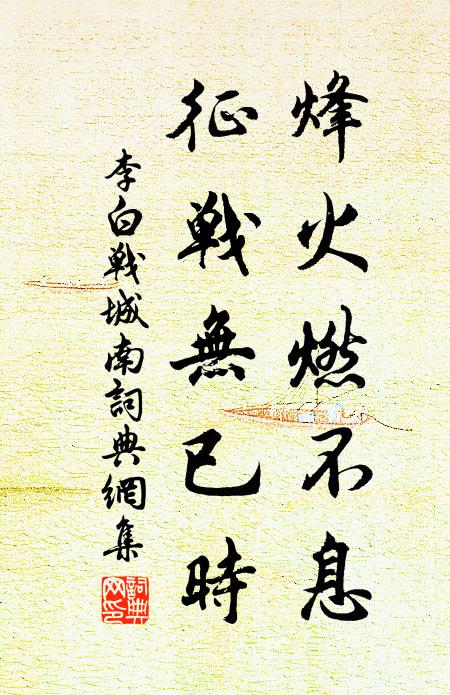 烽火燃不息
征戰無已時
李白戰城南詞典網集
詞典
网印